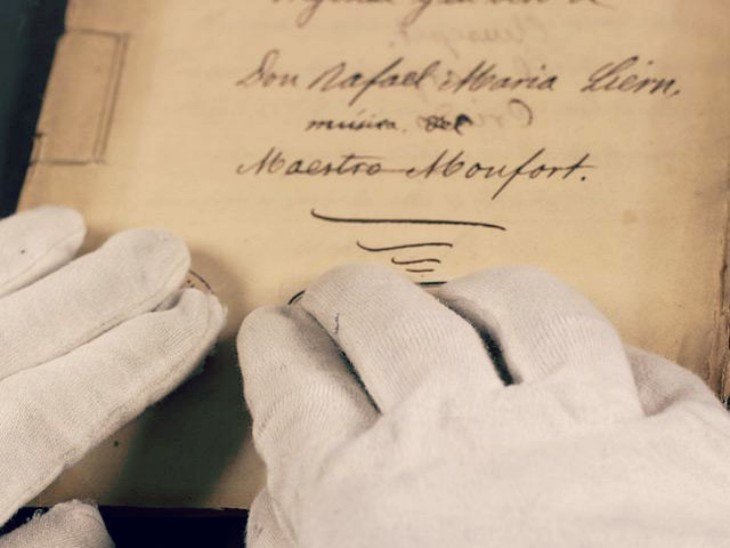 Don Rafael Maria Liern,
música del
Maestro Monfort.